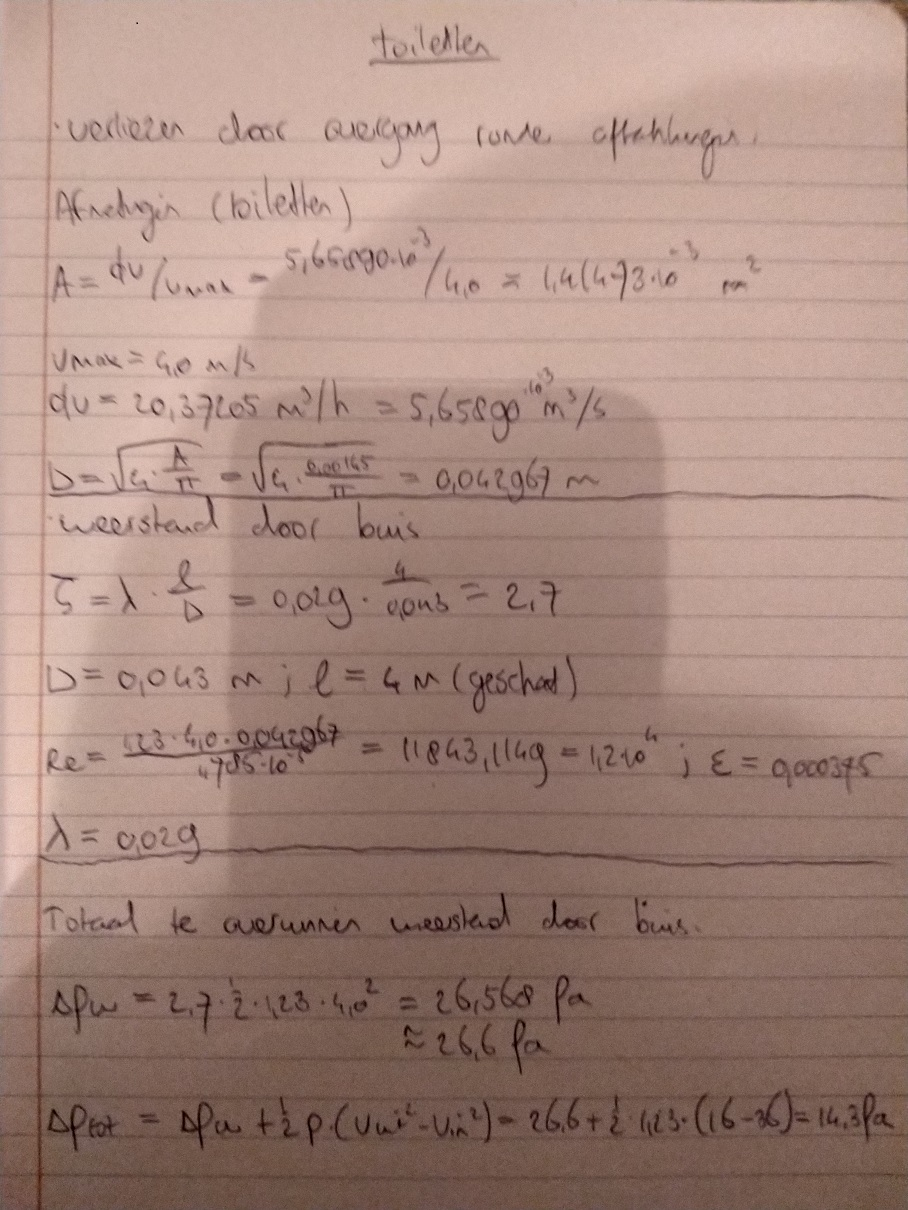 toiletten
· verliezen door overgang ronde aftakkingen.
Afmetingen (toiletten)
A = dv/vmax = 5,65890·10⁻³/4,0 = 1,41473·10⁻³ m²
Vmax = 4,0 m/s
dv = 20,37205 m³/h = 5,65890·10⁻³ m³/s
D = √(4·A/π) = √(4·0,00145/π) = 0,042967 m
· weerstand door buis
ζ = λ · l/D = 0,029 · 4/0,043 = 2,7
D = 0,043 m ; l = 4 m (geschat)
Re = 1,23·4,0·0,042967/1,785·10⁻⁵ = 11843,1149 = 1,2·10⁴ ; ε = 0,000375
λ = 0,029
Totaal te overwinnen weerstand door buis.
Δpw = 2,7·½·1,23·4,0² = 26,568 Pa
≈ 26,6 Pa
Δptot = Δpw + ½ρ·(Vuit² - Vin²) = 26,6 + ½·1,23·(16-36) = 14,3 Pa